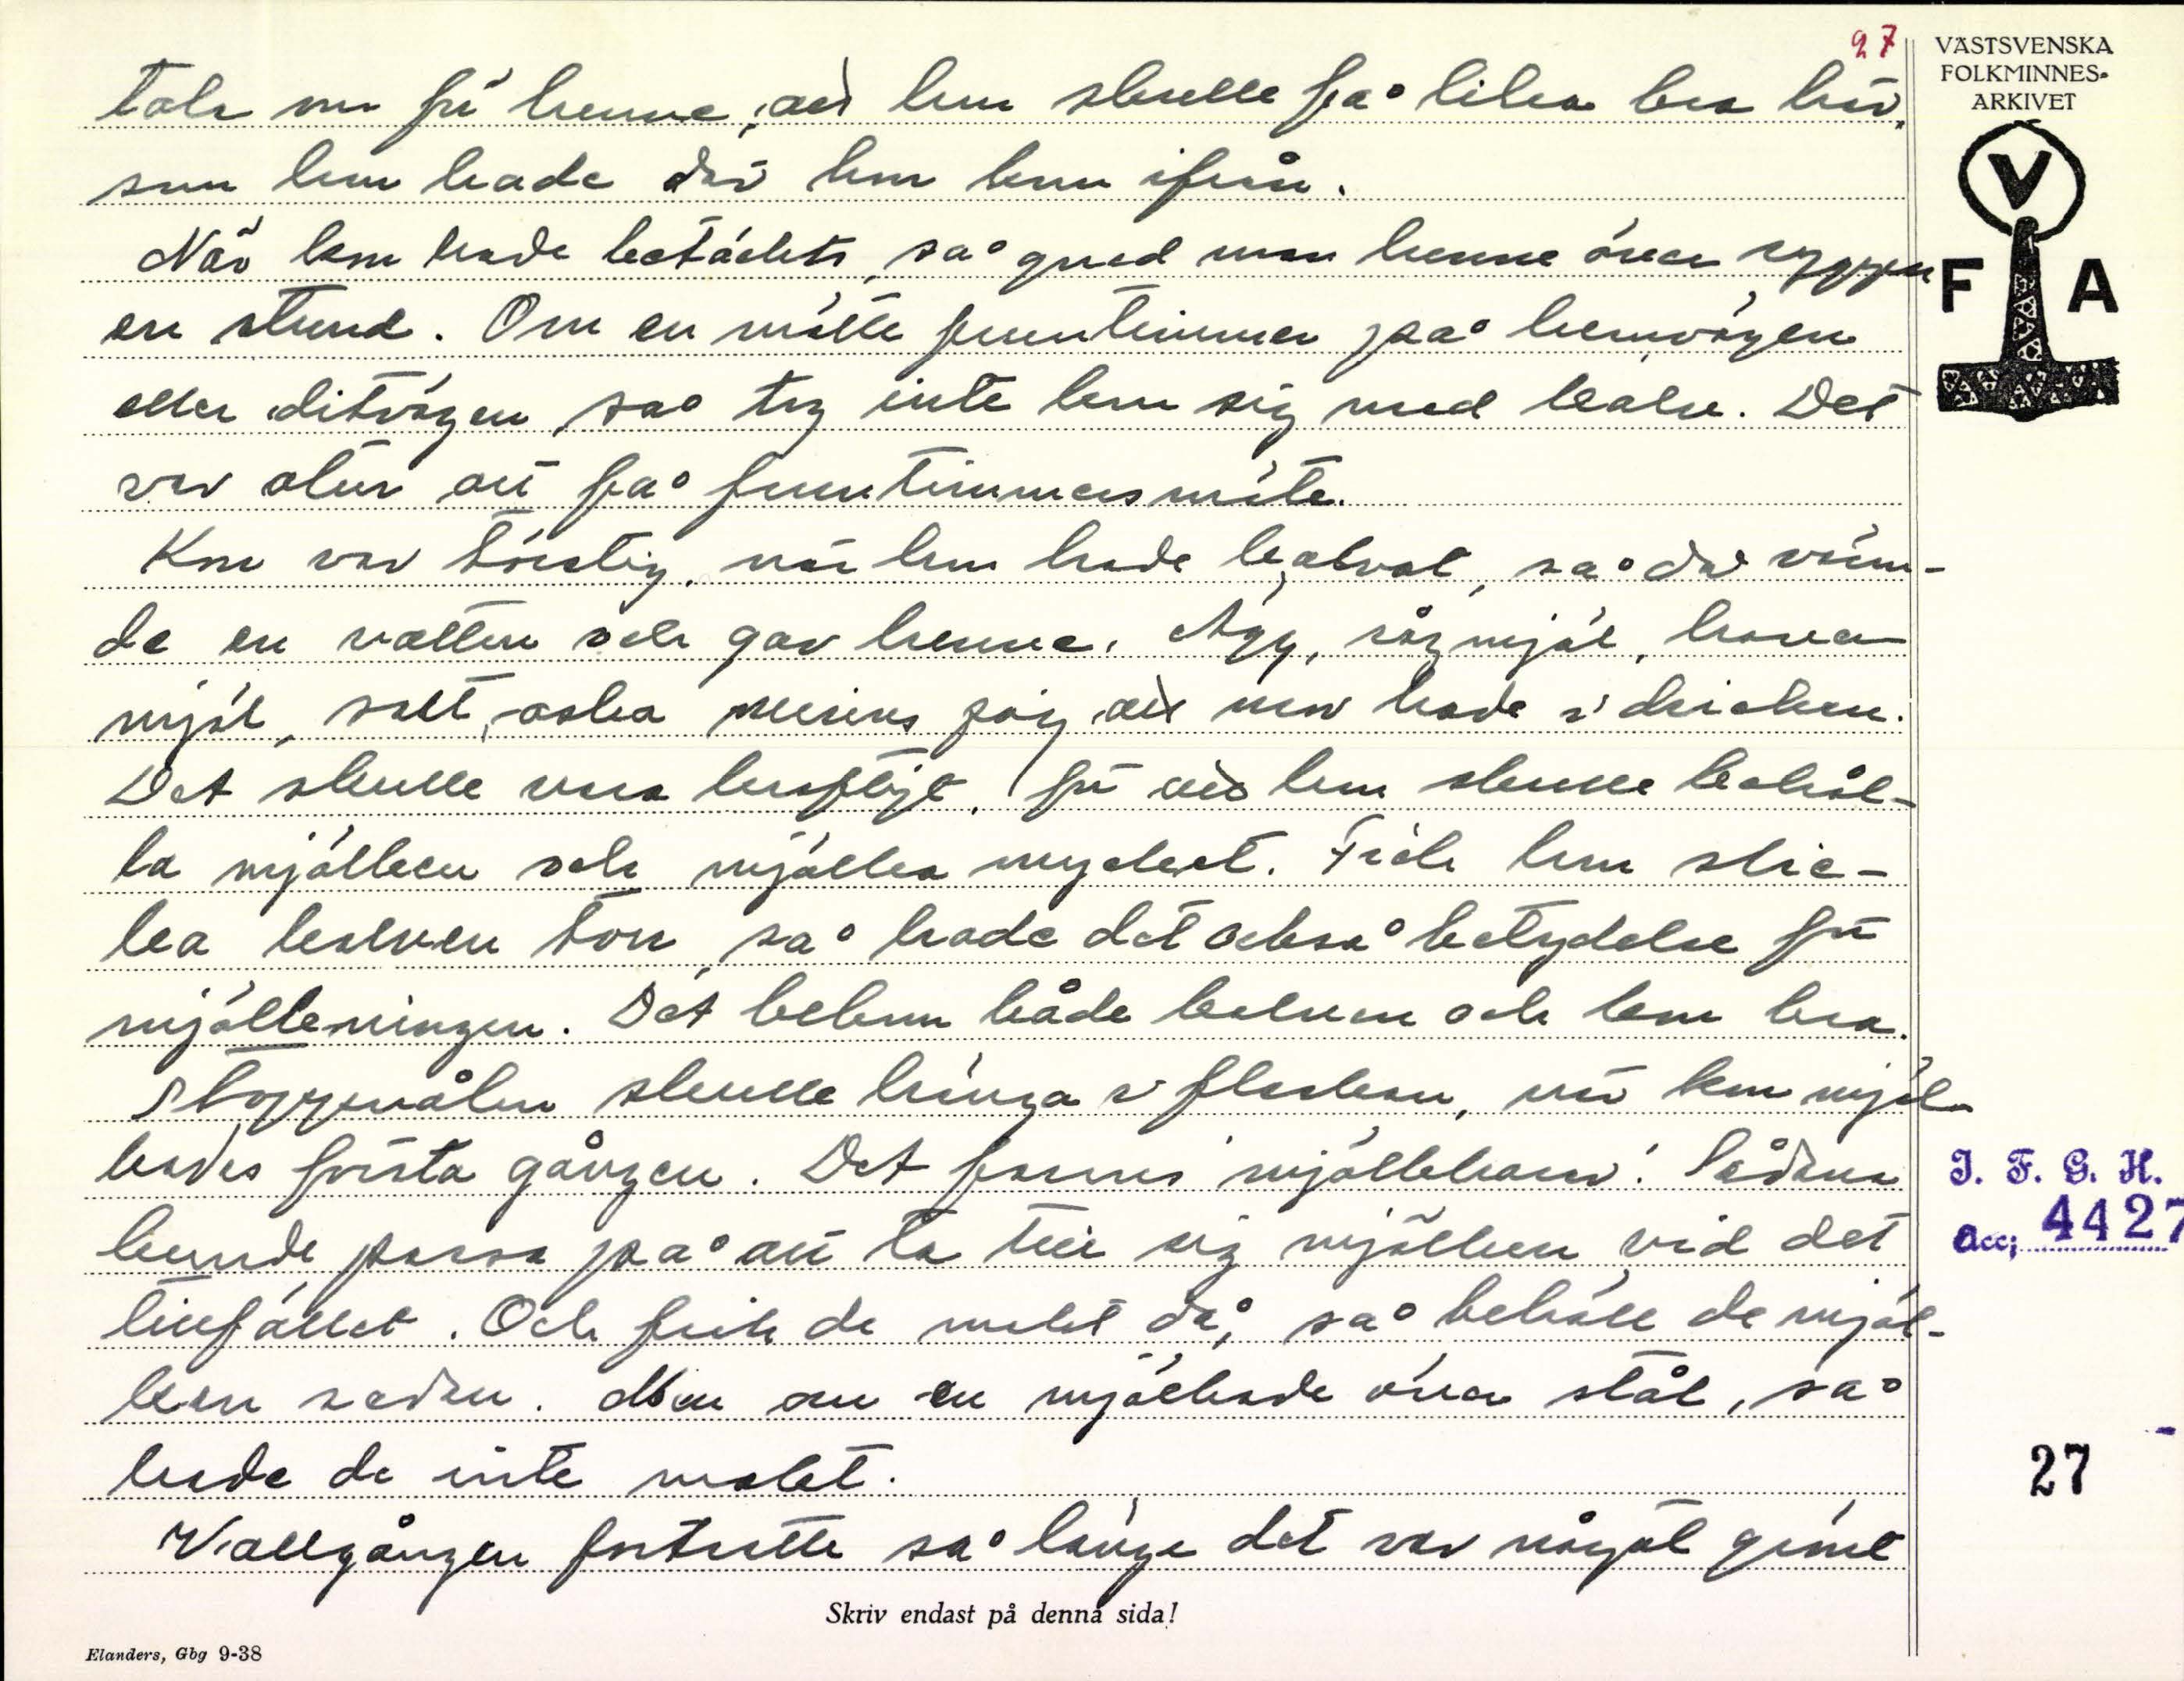 27
VÄSTSVENSKA
FOLKMINNES-
ARKIVET
V
F A
tala om för henne, att hon skulle få lika bra här,
som hon hade där hon kom ifrån.
När kon hade betäckts, så gned man henne över ryggen
en stund. Om en mötte fruntimmer på hemvägen
eller ditvägen, så tog inte kon sig med kalv. Det
var otur att få fruntimmersmöte.
Kon var törstig, när hon hade kalvat, så då värm-
de en vatten och gav henne. Ägg, rågmjöl, havre
mjöl, salt, aska minns jag att mor hade i dricken.
Det skulle vara kraftigt, för att hon skulle behål-
la mjölken och mjölka mycket. Fick hon slic-
ka kalven torr, så hade det också betydelse för
mjölkningen. Det bekom både kalven och kon bra.
Stoppenålen skulle hänga i flaskan, när kon mjöl-
kades första gången. Det fanns mjölkharar! Sådana
kunde passa på att ta till sig mjölken vid det
tillfället. Och fick de makt då, så behöll de mjöl-
ken sedan. Men om en mjölkade över stål, så
hade de inte makt.
Vallgången fortsatte så länge det var något grönt
Skriv endast på denna sida!
Elanders, Gbg 9-38
I. F. G. H.
Acc; 4427
27